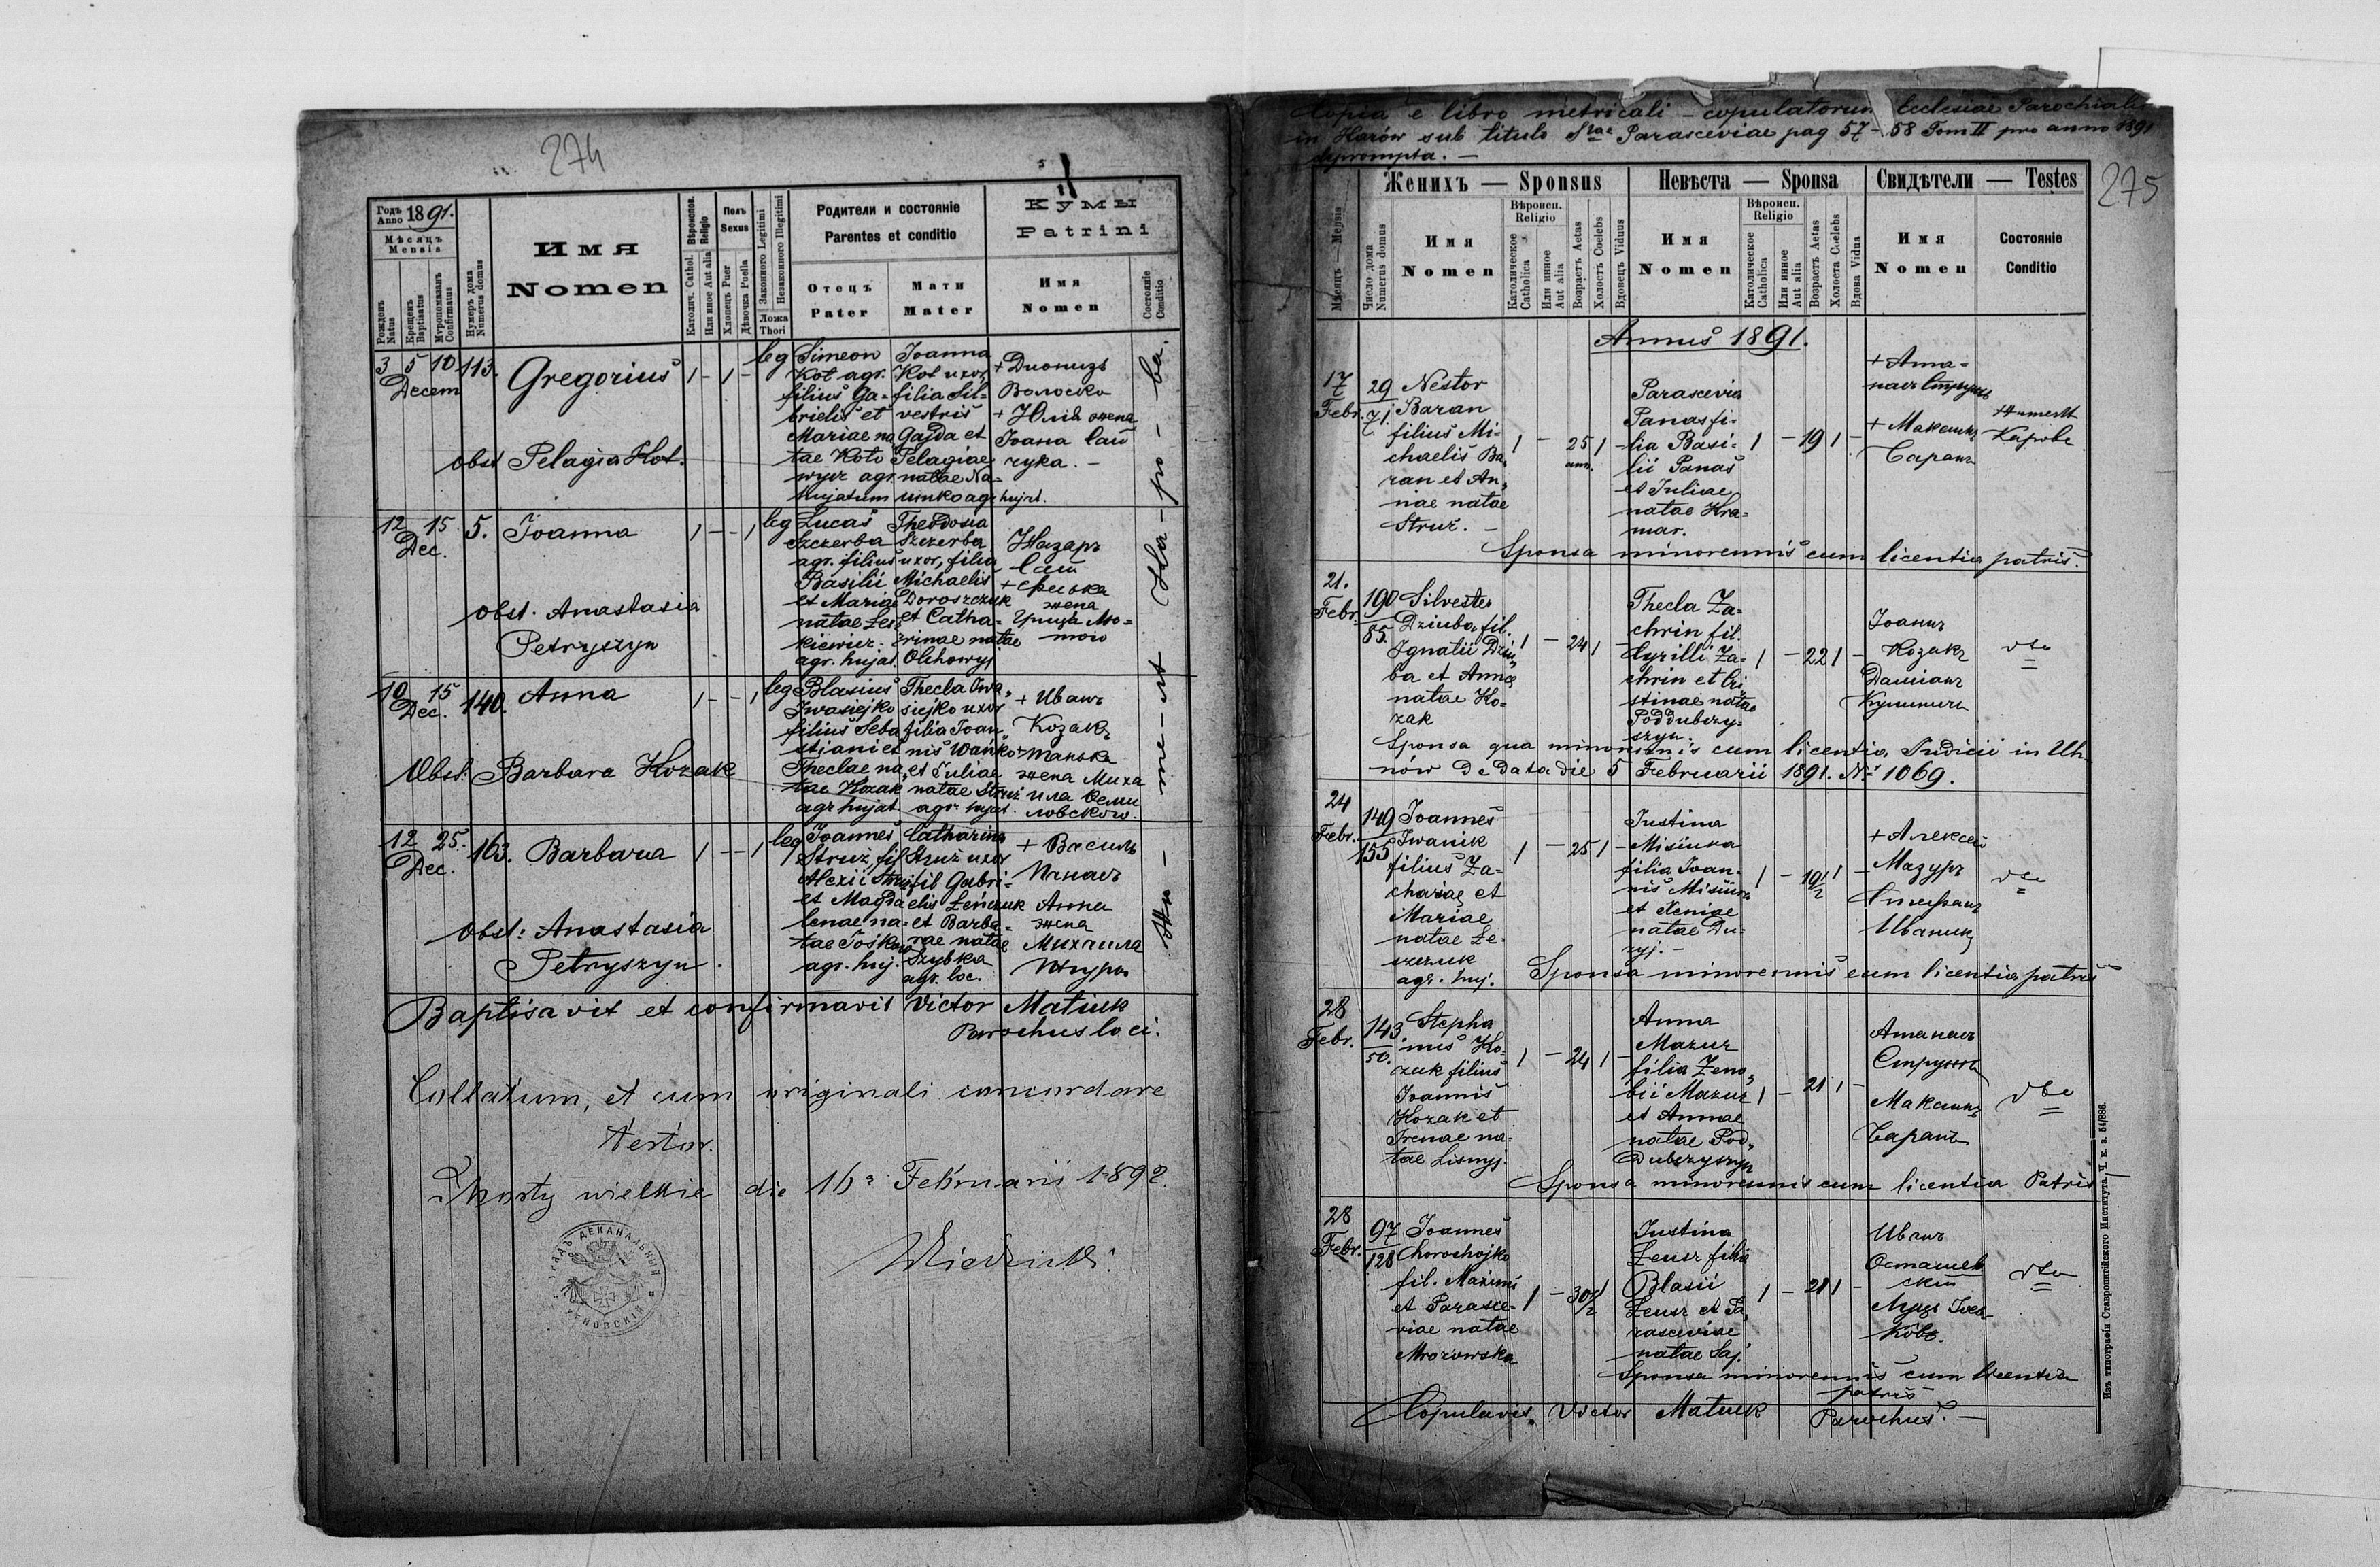 274
Годъ Anno 1891.
Мѣсяцъ
Mensis
Рожденъ Natus
Крещенъ Baptisatus
Мѵропомазанъ Confirmatus
Нумеръ дома Numerus domus
Имя
Nomen
Вѣроиспов. Religio
Католич. Cathol.
Или иное Aut alia
Полъ
Sexus
Хлопецъ Puer
Дѣвочка Puella
Законного Legitimi
Незаконного Illegitimi
Ложа
Thori
Родители и состояніе
Parentes et conditio
Отецъ
Pater
Мати
Mater
Кумы
Patrini
Имя
Nomen
Состояніе Conditio
3 5 10
Decem
113.
Gregorius
1 - 1 -
obst Pelagia Kot.
leg
Simeon
Kot agr.
filius Ga-
brielis et
Mariae na
tae Koto
wycz agr.
hujatum
Joanna
Kot uxor
filia Sil-
vestris
Gajda et
Pelagiae
natae Na-
umko agr hujat.
+ Дионизъ
Волоско
+ Юлія жена
Іоана Сай
чука. -
12 15
Dec.
5.
Joanna
1 - - 1
obst. Anastasia
Petryszyn
leg
Lucas
Szczerba
agr. filius
Basilii
et Mariae
natae Les
kiewicz
agr. hujat.
Theodosia
Szczerba
uxor, filia
Michaelis
Doroszczuk
et Catha-
rinae natae
Olchowyj
Назаръ
Сай
+ Феська
жена
Гриця Мо-
10 15
Dec.
140.
Anna
1 - - 1
Obst. Barbara Kozak
leg
Blasius
Iwasiejko
filius Seba
stiani et
Theclae na
tae Kozak
agr hujat
Thecla Iwa
siejko uxor
filia Joan
nis Wańko
et Juliae
natae Struż
agr. hujat.
+ Иванъ
Козакъ
+ Танька
жена Миха
ила
ловского.
12 25.
Dec.
163.
Barbara
1 - - 1
obst: Anastasia
Petryszyn.
leg
Joannes
Struż, fil
Alexii Struż
et Magda
lenae na-
tae Tośko
agr. huj.
Catharina
Struż uxor
fil Gabri-
elis Leńczuk
et Barba-
rae natae
Szybka
agr. loc.
+ Василь
Панасъ
Анна
жена
Михаила
Baptisavit et confirmavit Victor Matiuk
Parochus loci.
Collatum, et cum originali concordare
testor.
Thorty wielkie die 16a Februarii 1892.
ДЕКАНАЛЬНЫЙ
УГНОВСКІЙ
Copia e libro metricali - copulatorum Ecclesiae Parochialis
in Karów sub titulo Stae Parasceviae pag 57 - 58 Tom II pro anno 1891
deprompta. -
275
Женихъ — Sponsus
Невѣста — Sponsa
Свидѣтели — Testes
Мѣсяцъ — Mensis
Число дома Numerus domus
Имя
Nomen
Вѣроисп.
Religio
Католическое Catholica
Или инное Aut alia
Возрастъ Aetas
Холостъ Coelebs
Вдовецъ Viduus
Имя
Nomen
Вѣроисп.
Religio
Католическое Catholica
Или инное Aut alia
Возрастъ Aetas
Холоста Coelebs
Вдова Vidua
Имя
Nomen
Состояніе
Conditio
Annus 1891.
17
Febr.
29
71.
Nestor
Baran
filius Mi-
chaelis Ba-
ran et An-
nae natae
Struż. -
1 - 25 1 -
ann.
Parascevia
Panas fi-
lia Basi-
lii Panas
et Juliae
natae Kra-
mar.
1 - 19 1 -
+ Ата-
насъ Стружъ
+ Максимъ
Баранъ
Карове
Sponsa minorennis cum licentia patris.
21.
Febr.
190
85.
Silvester
Dziuba fil.
Ignatii Dziu
ba et Annae
natae Ko-
zak
1 - 24 1
Thecla Za-
chrin fil.
Cyrilli Za-
chrin et Cri
stinae natae
Poddubczy-
szyn.
1 - 22 1 -
Іоаннъ
Козакъ
Даміанъ
dto
Sponsa qua minorennis cum licentia Iudicii in Uh-
nów Dedata die 5 Februarii 1891. No 1069.
24
Febr.
149
155
Joannes
Iwanik
filius Za-
chariae et
Mariae
natae Le-
szczuk
agr. huj.
1 - 25 1 -
Justina
Misiura
filia Joan-
nis Misiura
et Xeniae
natae Du-
żyj. -
1 - 19 1/2 1 -
+ Алексей
Мазуръ
Иваникъ
dto
Sponsa minorennis cum licentia patris
28
Febr.
143.
50.
Stepha
nus Ko-
zak filius
Joannis
Kozak et
Irenae na-
tae Lisnyj.
1 - 24 1 -
Anna
Mazur
filia Zeno-
bii Mazur
et Annae
natae Pod-
dubczyszyn
1 - 21 1 -
Атанасъ
Стружъ
Максимъ
Баранъ
dto
Sponsa minorennis cum licentia Patris
28
Febr.
97
128
Joannes
Chorochojko
fil. Maximi
et Parasce-
viae natae
Mrozowska
1 - 30 1/2 1
Justina
Zeusz filia
Blasii
Zeusz et Pa
rasceviae
natae Saj.
1 - 21 1 -
Иванъ
Осташев
скій
dto
Sponsa minorennis cum licentia
patris
Copulavit Victor Matiuk Parochus. -
Изъ типографіи Ставропигійского Института. Ч. к. з. 54/886.